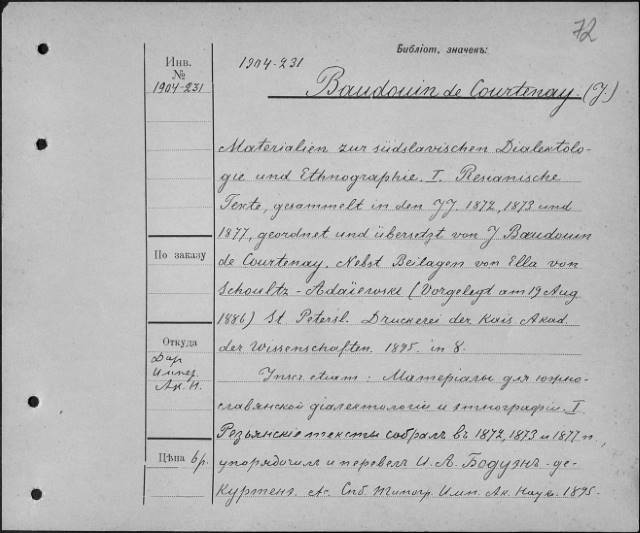 72
Библіот. значекъ:
Инв.
№
1904-231
1904-231
Baudouin de Courtenay. (J.)
Materialien zur südslavischen Dialektolo-
gie und Ethnographie. I. Resianische
Texte, gesammelt in den JJ. 1872, 1873 und
1877, geordnet und übersetzt von J Baudouin
По заказу
de Courtenay. Nebst Beilagen von Ella von
Schoultz-Adaïewski (Vorgelegt am 19 Aug
1886) St. Petersb. Druckerei der Kais Akad.
Откуда
Дар
Импер.
Ак. Н.
der Wissenschaften. 1895. in 8.
etiam: Матеріалы для южно-
славянской діалектологіи и этнографіи I
Резьянскіе тексты собралъ въ 1872, 1873 и 1877 г.,
Цѣна 6 р.
упорядочилъ и перевелъ И. А. Бодуэнъ-де-
Куртенэ. Спб. Типогр. Имп. Ак. Наук. 1895.